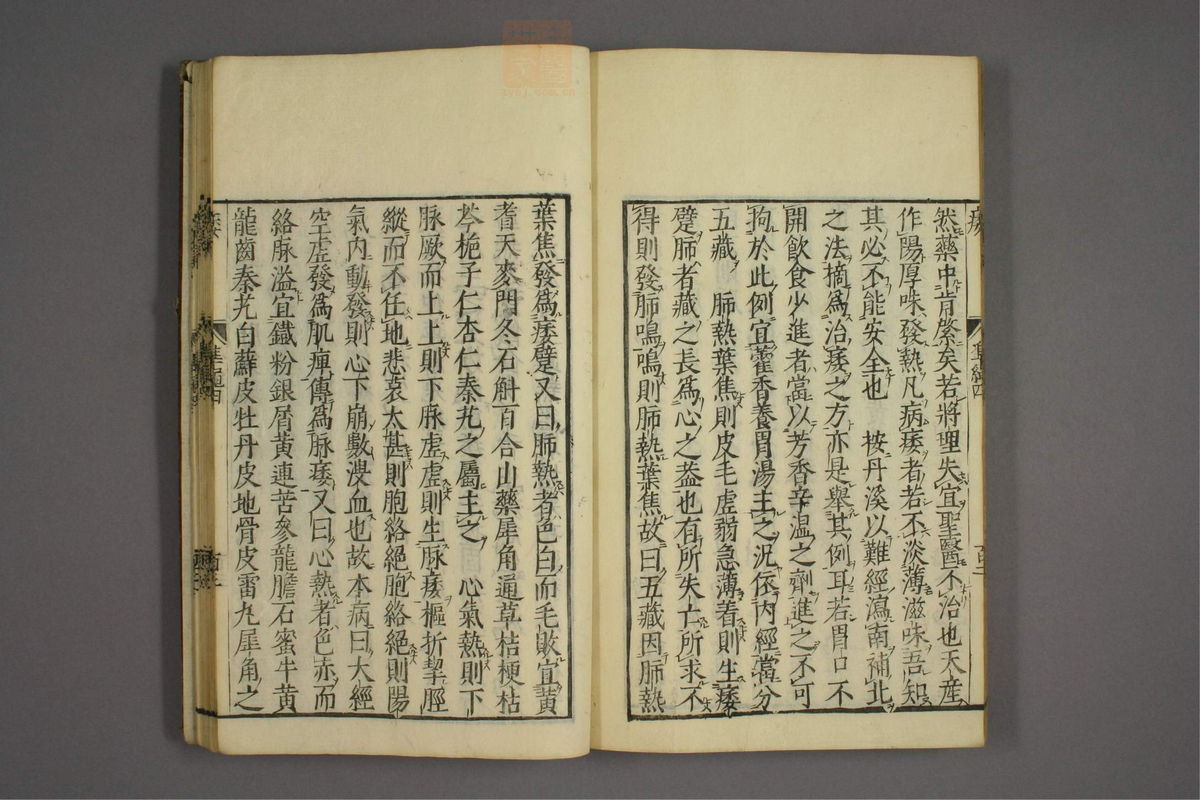 然藥中肯綮矣若將理失宜聖醫不治也天産
作陽厚味發熱凡病痿者若不淡薄滋味吾知
其必不能安全也　按丹溪以難經瀉南補北
之法摘為治痿之方亦是舉其例耳若胃口不
開飲食少進者當以芳香辛温之劑進之不可
拘於此例宜藿香養胃湯主之況依内經當分
五藏　肺熱葉焦則皮毛虛弱急薄着則生痿
躄肺者藏之長為心之蓋也有所失亡所求不
得則發肺鳴鳴則肺熱葉焦故曰五藏因肺熱
葉焦發為痿躄又曰肺熱者色白而毛敗宜黄
耆天麥門冬石斛百合山藥犀角通草桔梗枯
芩梔子仁杏仁秦艽之屬主之　心氣熱則下
脉厥而上上則下脉虛虛則生脉痿樞折挈脛
縱而不任地悲哀太甚則胞絡絶胞絡絶則陽
氣内動發則心下崩數溲血也故本病曰大經
空虛發為肌痺傳為脉痿又曰心熱者色赤而
絡脉溢宜鐵粉銀屑黄連苦參龍膽石蜜牛黄
龍齒秦艽白蘚皮牡丹皮地骨皮雷丸犀角之